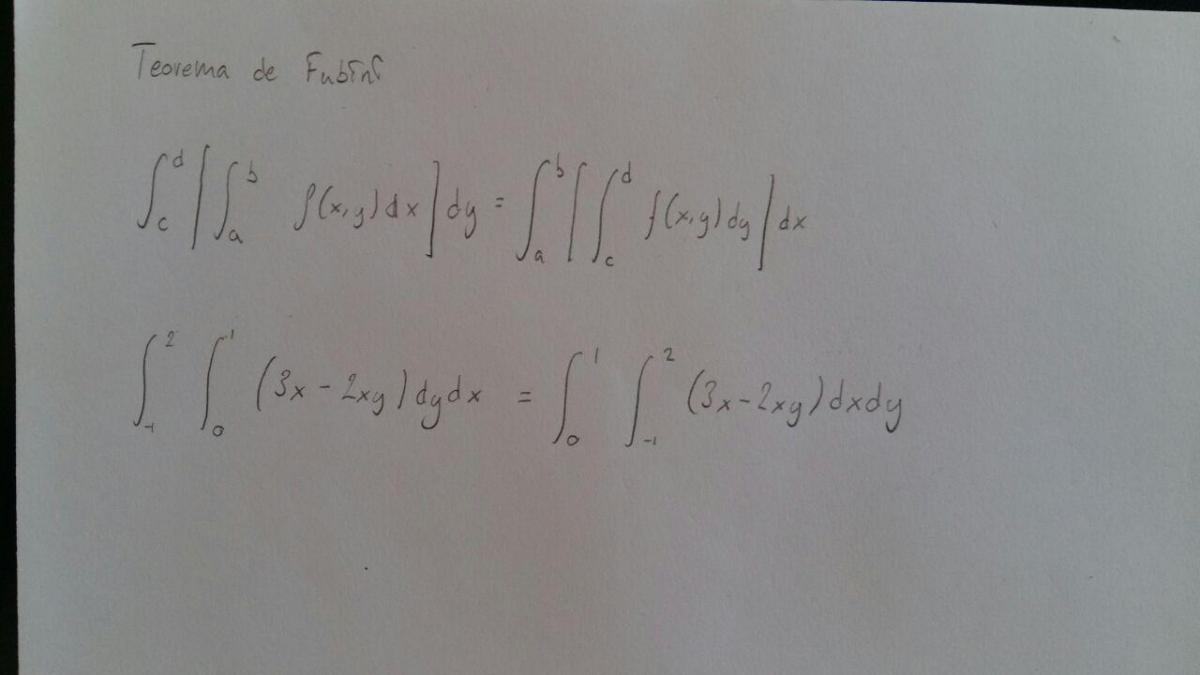 Teorema de Fubini
∫_c^d [∫_a^b f(x,y)dx] dy = ∫_a^b [∫_c^d f(x,y)dy] dx
∫_{-1}^2 ∫_0^1 (3x-2xy)dydx = ∫_0^1 ∫_{-1}^2 (3x-2xy)dxdy